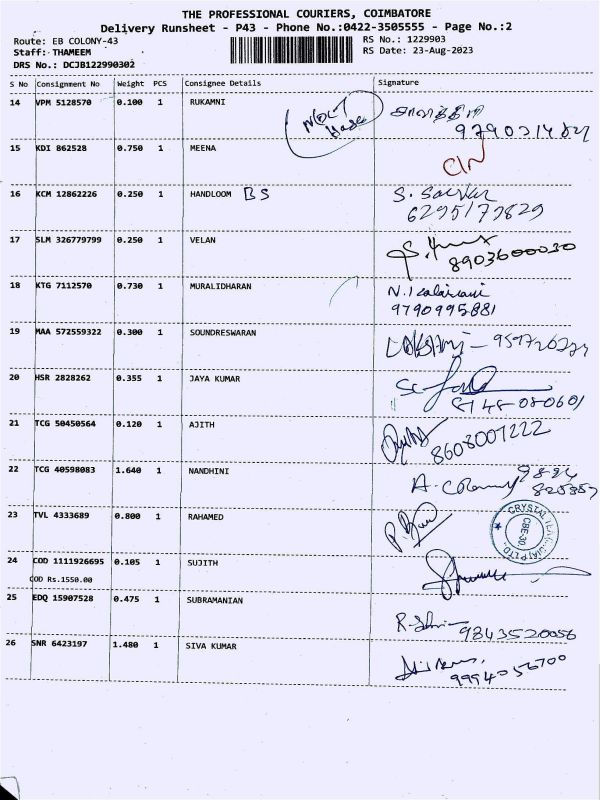 THE PROFESSIONAL COURIERS, COIMBATORE
Delivery Runsheet - P43 - Phone No.:0422-3505555 - Page No.:2
Route: EB COLONY-43
RS No.: 1229903
Staff: THAMEEM
RS Date: 23-Aug-2023
DRS No.: DCJB122990302
S No Consignment No Weight PCS Consignee Details Signature
14 VPM 5128570 0.100 1 RUKAMNI
15 KDI 862528 0.750 1 MEENA
16 KCM 12862226 0.250 1 HANDLOOM BS
6295177829
17 SLM 326779799 0.250 1 VELAN
8903600030
18 KTG 7112570 0.730 1 MURALIDHARAN
9790995881
19 MAA 572559322 0.300 1 SOUNDRESWARAN
20 HSR 2828262 0.355 1 JAYA KUMAR
8148-080601
21 TCG 50450564 0.120 1 AJITH
8608007222
22 TCG 40598083 1.640 1 NANDHINI
23 TVL 4333689 0.800 1 RAHAMED
CBE-30
24 COD 1111926695 0.105 1 SUJITH
COD Rs.1550.00
25 EDQ 15907528 0.475 1 SUBRAMANIAN
9843520056
26 SNR 6423197 1.480 1 SIVA KUMAR
9994056700